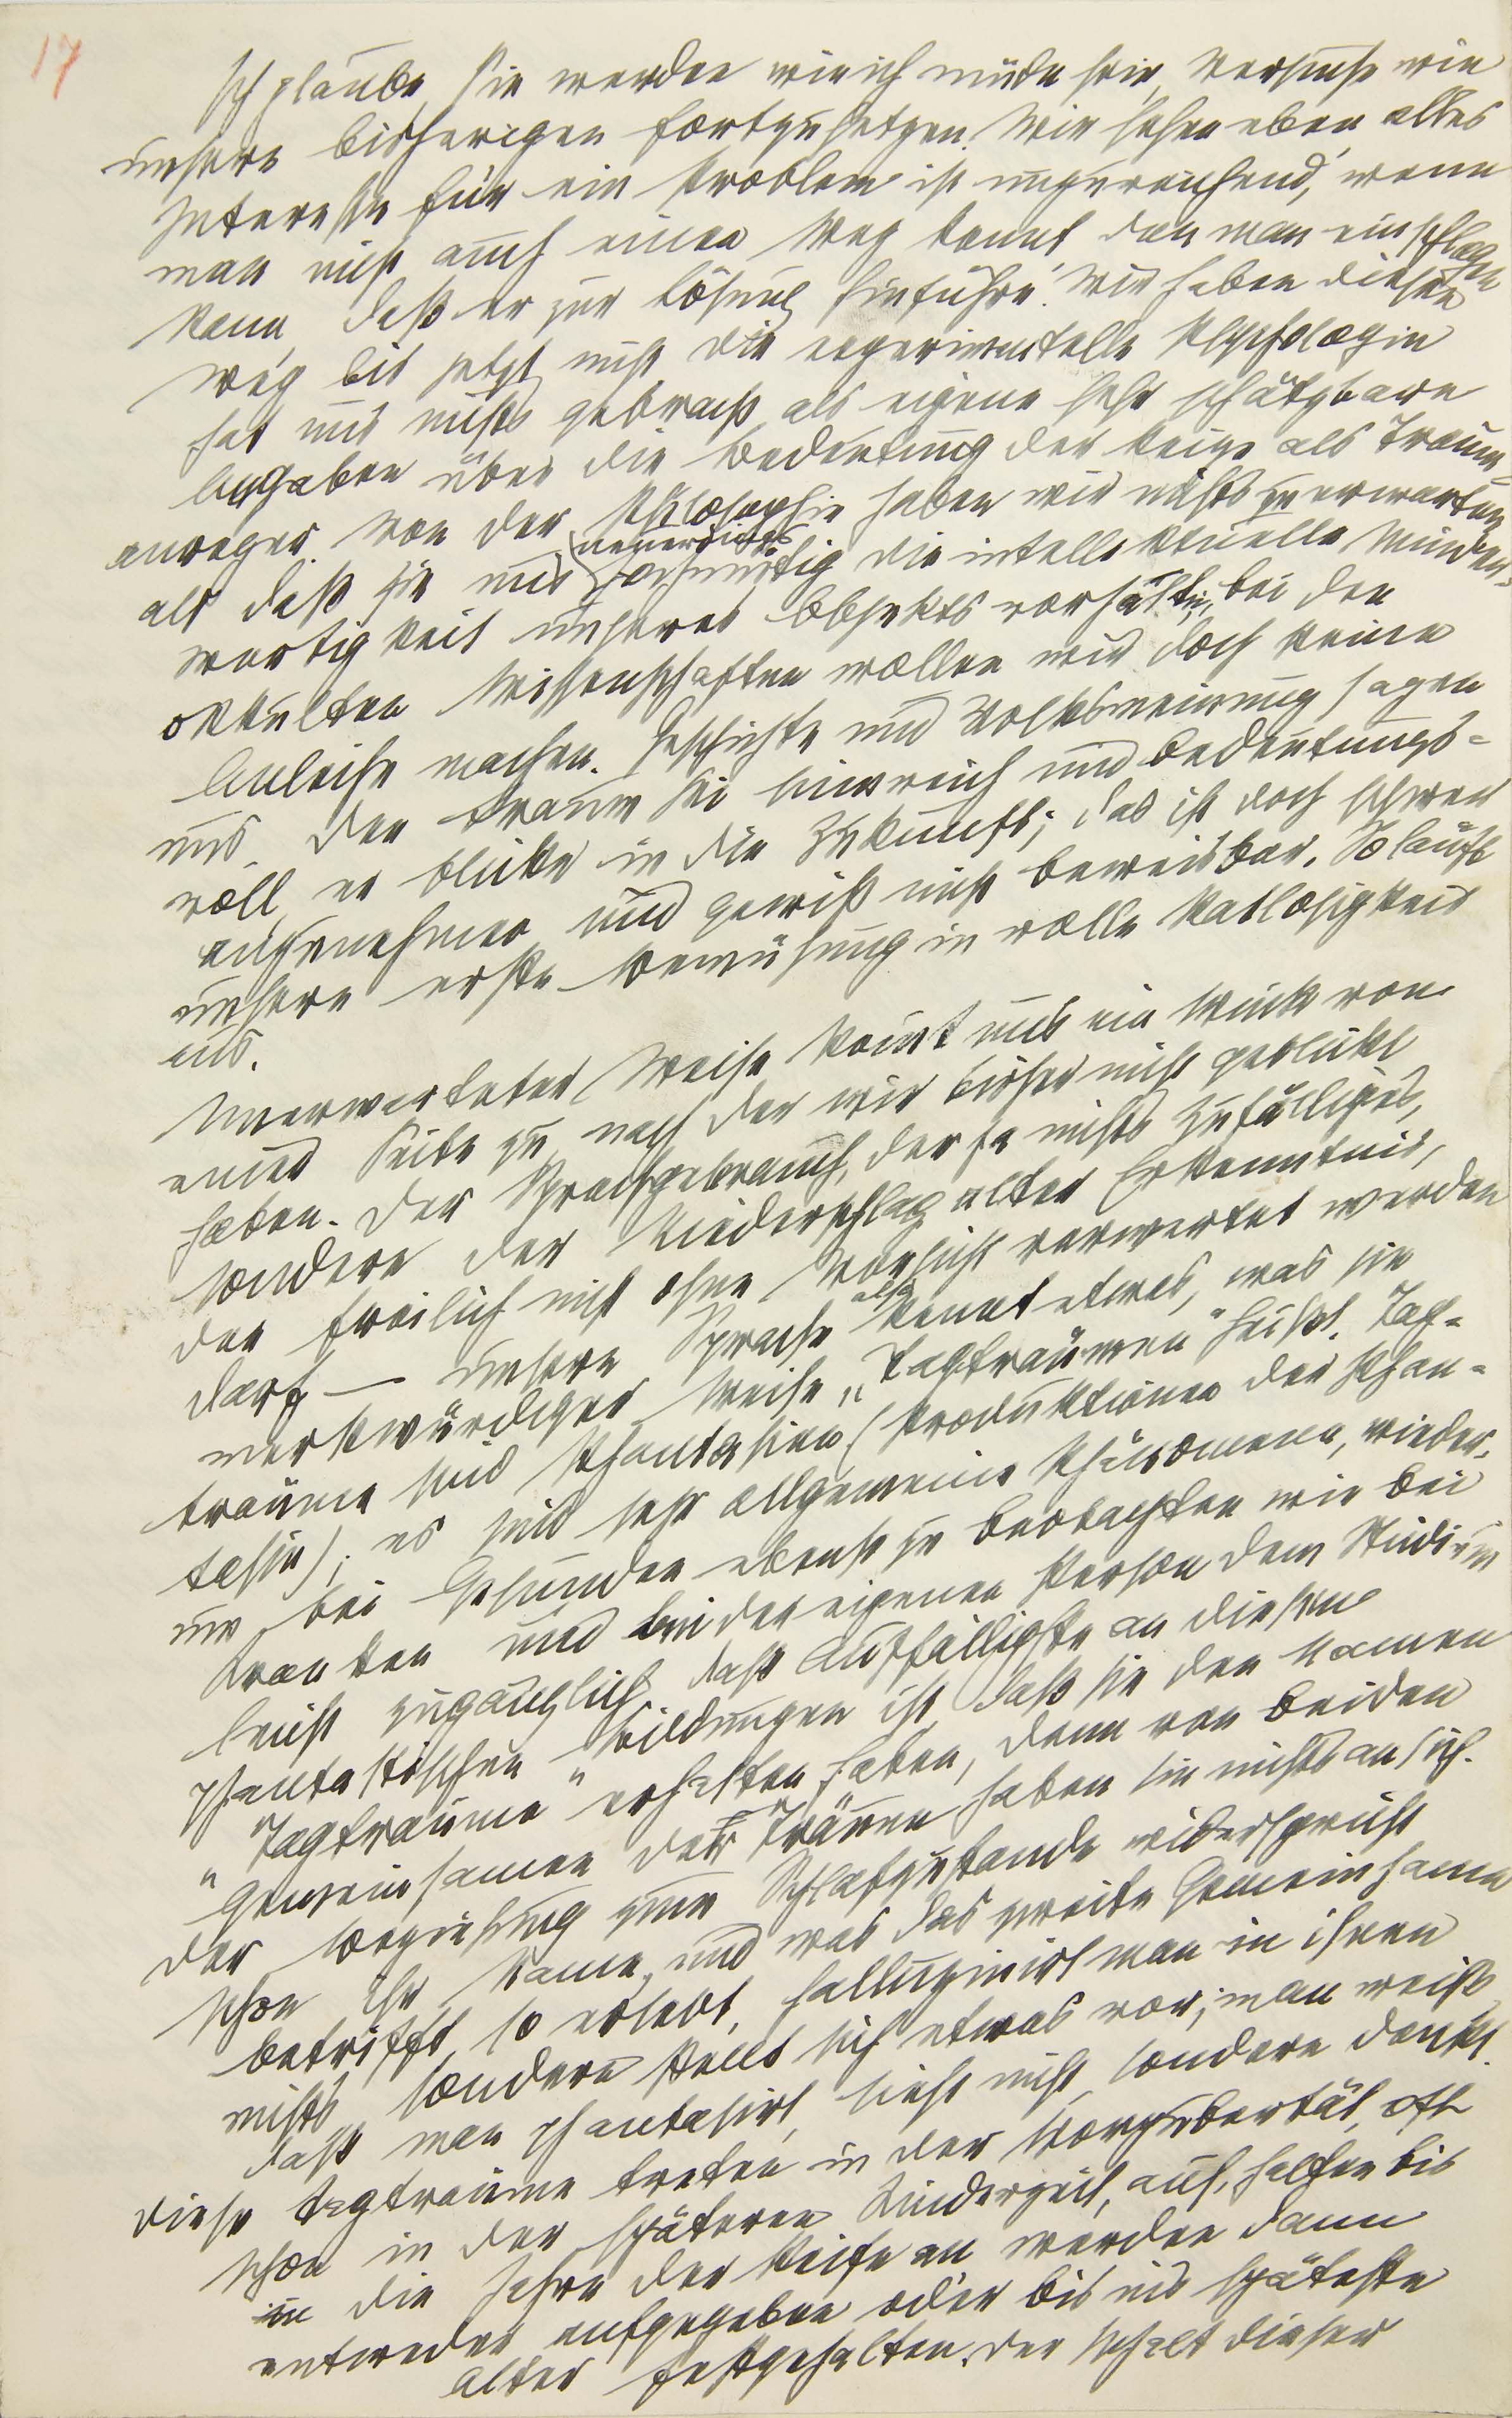 17
Ich glaube, Sie werden wie ich müde sein, Versuche wie
unsere bisherigen fortzusetzen. Wir sehen eben, alles
Interesse für ein Problem ist unzureichend, wenn
man nicht auch einen Weg kennt, den man einschlagen
kann, daß er zur Lösung hinführe. Wir haben diesen
Weg bis jetzt nicht. Die experimentelle Psychologie
hat uns nichts gebracht als einige sehr schätzbare
Angaben über die Bedeutung der Reize als Traum
anreger. Von der Philosophie haben wir nichts zu erwarten
als daß sie uns neuerdings hochmütig die intellektuelle Minder-
wertigkeit unseres Objekts vorhält; bei den
okkulten Wissenschaften wollen wir doch keine
Anleihe machen. Geschichte und Volksmeinung sagen
uns, der Traum sei sinnreich und bedeutungs-
voll, er blicke in die Zukunft; das ist doch schwer
anzunehmen und gewiß nicht beweisbar. So läuft
unsere erste Bemühung in volle Ratlosigkeit
aus.
Unerwarteter Weise kommt uns ein Wink von
einer Seite zu, nach der wir bisher nicht geblickt
haben. Der Sprachgebrauch, der ja nichts Zufälliges,
sondern der Niederschlag alter Erkenntnis,
der freilich nicht ohne Vorsicht verwertet werden
darf — unsere Sprache also kennt etwas, was sie
merkwürdiger Weise „Tagträumen“ heißt. Tag-
träume sind Phantasien (Produktionen der Phan-
tasie); es sind sehr allgemeine Phänomene, wieder-
um bei Gesunden ebenso zu beobachten wie bei
Kranken und bei der eigenen Person dem Studium
leicht zugänglich. Daß Auffälligste an diesen
phantastischen Bildungen ist, daß sie den Namen
„Tagträume“ erhalten haben, denn von beiden
Gemeinsamen der Träume haben sie nichts an sich.
Der Beziehung zum Schlafzustande widerspricht
schon ihr Name, und was das zweite Gemeinsame
betrifft, so erlebt, halluzinirt man in ihnen
nichts, sondern stellt sich etwas vor; man weiß,
daß man phantasirt, sieht nicht, sondern denkt.
Diese Tagträume treten in der Vorpubertät, oft
schon in der späteren Kinderzeit, auf, halten bis
in die Jahre der Reife an, werden dann
entweder aufgegeben oder bis ins späteste
Alter festgehalten. Der Inhalt dieser